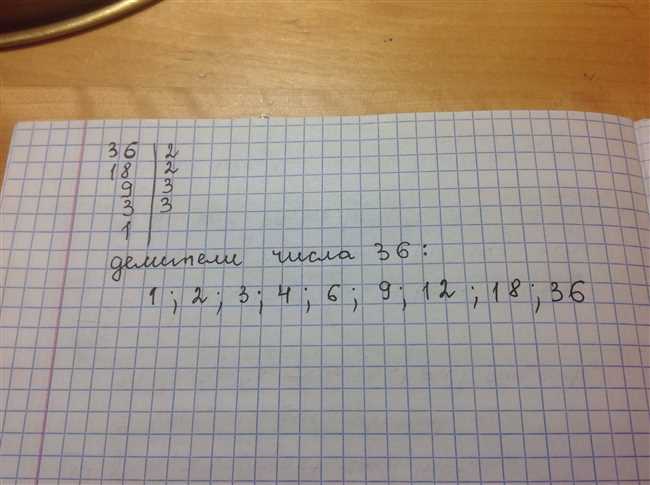 36 | 2
18 | 2
9 | 3
3 | 3
1 |
делители числа 36:
1; 2; 3; 4; 6; 9; 12; 18; 36